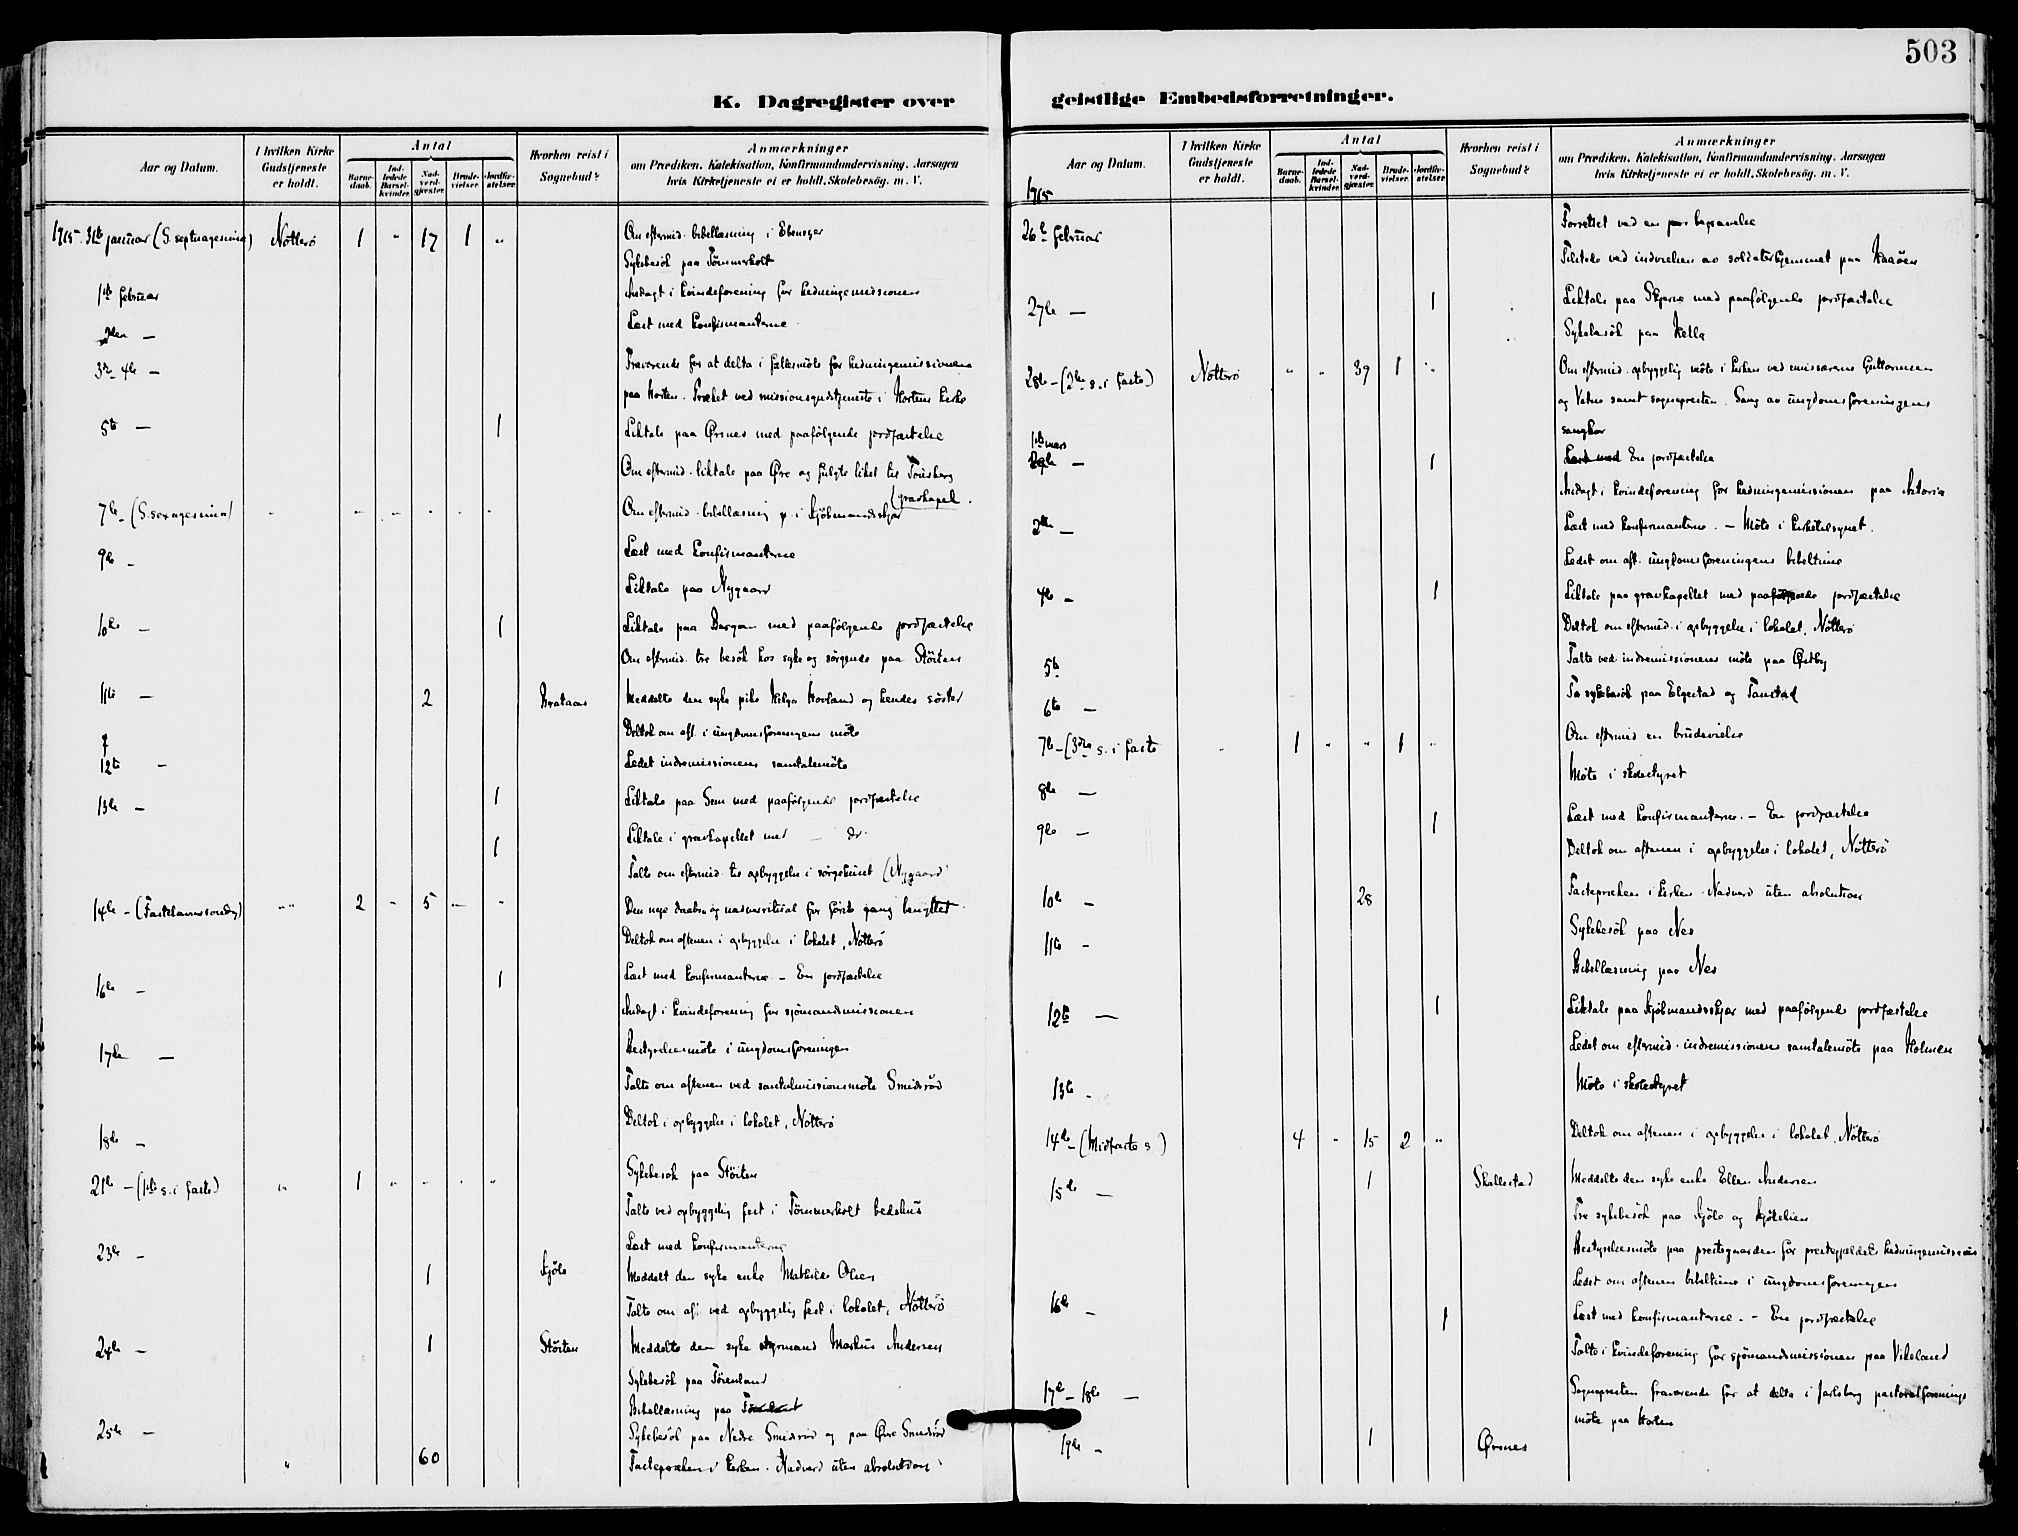 503
K. Dagregister over geistlige Embedsforretninger.
Aar og Datum.
I hvilken Kirke Gudstjeneste er holdt.
Antal
Barnedaab.
Indledede Barselkvinder.
Nadverdgjæster.
Brudevielser.
Jordfæstelser.
Hvorhen reist i Sognebud?
Anmærkninger
om Prædiken, Katekisation, Konfirmandundervisning, Aarsagen
hvis Kirketjeneste ei er holdt, Skolebesøg. m. V.
1915 31te januar (S. septuagesima) Nötterö 1 " 17 1 " Om eftermid. bibellæsning i Ebenezer
Sykebesök paa Tömmerholt
1ste februar Andagt i kvindeforening for hedningemissionen
2den — Læst med konfirmanterne
3dje-4de — Fraværende for at delta i fællesmöte for hedningemissionen
paa Horten. Præket ved missionsgudstjeneste i Hortens kirke
5te — 1 Liktale paa Ørsnes med paafölgende jordfæstelse
Om eftermid. liktale paa Øre og fulgte liket til Tönsberg
(gravkapel.
7de - (S. sexagesima) Om eftermid. bibellæsning i Kjöbmandskjær
9de - Læst med konfirmanterne
Liktale paa Nygaard
10de - 1 Liktale paa Bergan med paafölgende jordfæstelse
Om eftermid. tre besök hos syke og sörgende paa Störten
11te — 2 Brataas Meddelte den syke pike Helga Hovland og hendes söster
Deltok om aft. i ungdomsforeningens möte
12te - Ledet indremissionens samtalemöte
13de - 1 Liktale paa Sem med paafölgende jordfæstelse
1 Liktale i gravkapellet med — do.
Talte om eftermid. til opbyggelse i sörgehuset (Nygaard)
14de - (Fastelavnssöndag) " 2 - 5 — " Den nye daabs og nadverritual for förste gang benyttet
Deltok om aftenen i opbyggelse i lokalet, Nötterö
16de - 1 Læst med konfirmanterne - En jordfæstelse
Andagt i kvindeforening for sjömandsmissionen
17de — Bestyrelsesmöte i ungdomsforeningen
Talte om aftenen ved santalmissionsmöte Smidsröd
18de - Deltok i opbyggelse i lokalet, Nötterö
21de - (1ste s. i faste) " 1 " " " " Sykebesök paa Störten
Talte ved opbyggelig fest i Tömmerholt bedehus
23de - Læst med konfirmanterne
1 Kjöle Meddelt den syke enke Mathilde Olsen
Talte om aft. ved opbyggelig fest i lokalet, Nötterö
24de - 1 Störten Meddelte den syke styrmand Markus Andersen
Sykebesök paa
Bibellæsning paa
25de — Sykebesök paa Nedre Smidsröd og paa Övre Smidsröd
" 60 Fastepræken i kirken. Nadverd uten absolution
1915
26de februar Forrettet ved en begravelse
Tiltale ved indvielsen av soldaterhjemmet paa Haaöen
27de — 1 Liktale paa Skjerve med paafölgende jordfæstelse
Sykebesök paa Hella
28de - (2den s. i faste) Nötterö " " 39 1 " Om eftermid. opbyggelig möte i kirken ved missærene Guttormsen
og Vatne samt sognepresten. Sang av ungdomsforeningens
sangkor
1ste mars — 1 En jordfæstelse
Andagt i kvindeforening for hedningemissionen paa Astoria
2den — Læst med konfirmanterne. - Möte i kirketilsynet.
Ledet om aft. ungdomsforeningens bibeltime
4de - 1 Liktale paa gravkapellet med paafölgende jordfæstelse
Deltok om eftermid. i opbyggelse i lokalet, Nötterö
5te Talte ved indremissionens möte paa Østby
6te — To sykebesök paa Elgestad og Tanstad
7de - (3dje s. i faste " 1 " " 1 " Om eftermid en brudevielse
8de — Möte i skolestyret
9de — 1 Læst med konfirmanterne. - En jordfæstelse
Deltok om aftenen i opbyggelse i lokalet, Nötterö
10de - 28 Fastepræken i kirken. Nadverd uten absolution
11te - Sykebesök paa Nes
Bibellæsning paa Nes
12te — 1 Liktale paa Kjöbmandsskjær med paafölgende jordfæstelse
Ledet om eftermid. indremissionens samtalemöte paa Holmen
13de - Möte i skolestyret
14de - (Midfaste s) 4 " 15 2 " Deltok om aftenen i opbyggelse i lokalet, Nötterö
15de — 1 Skallestad Meddelte den syke enke Ellen Andersen
Tre sykebesök paa Kjöle og
Bestyrelsesmöte paa prestegaarden for prestegjældets hedningemission
Ledet om aftenen bibeltime i ungdomsforeningen
16de - 1 Læst med konfirmanterne. - En jordfæstelse
Talte i kvindeforening for sjömandsmissionen paa Vikeland
17de - 18de — Sognepresten fraværende for at delta i Jarlsberg pastoralforenings
möte paa Horten
19de - 1 Ørsnes